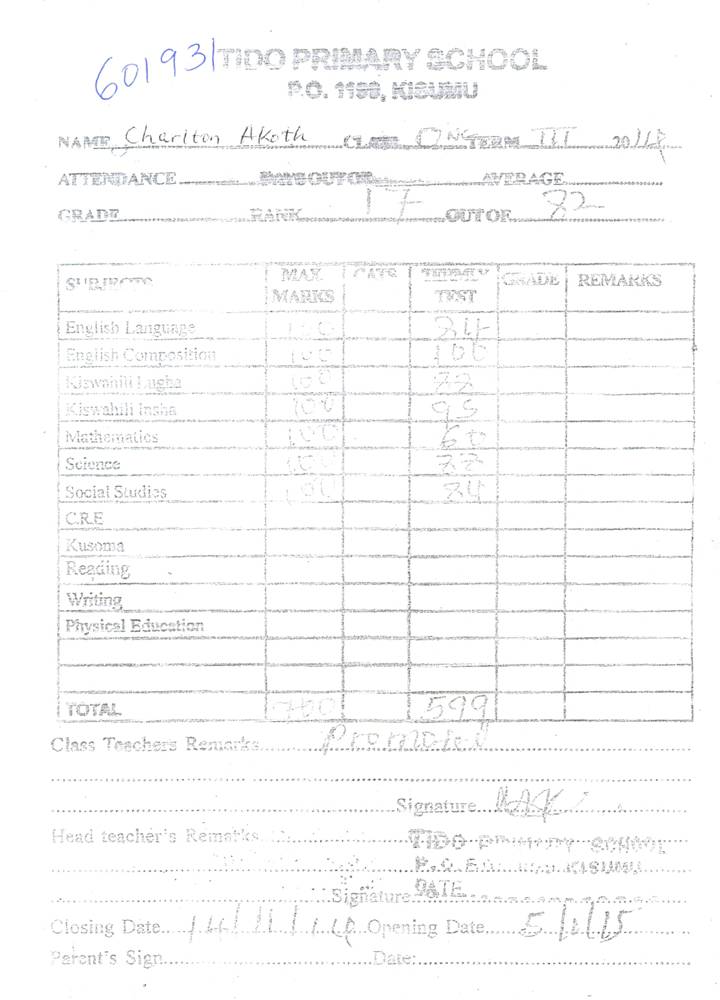 601931
TIDO PRIMARY SCHOOL
P.O. 1199, KISUMU
NAME Charlton Akoth CLASS One TERM III 2014
ATTENDANCE DAYS OUT OF AVERAGE
GRADE RANK 17 OUT OF 82
SUBJECTS MAX MARKS CATS TERMLY TEST GRADE REMARKS
English Language 100 84
English Composition 100 100
Kiswahili Lugha 100
Kiswahili Insha 100 95
Mathematics 100 60
Science 100
Social Studies 100 84
C.R.E
Kusoma
Reading
Writing
Physical Education
TOTAL 700 599
Class Teachers Remarks Promoted
Signature
Head teacher's Remarks TIDO PRIMARY SCHOOL
P.O. KISUMU
Signature DATE
Closing Date 14/11/14 Opening Date 5/1/15
Parent's Sign Date: